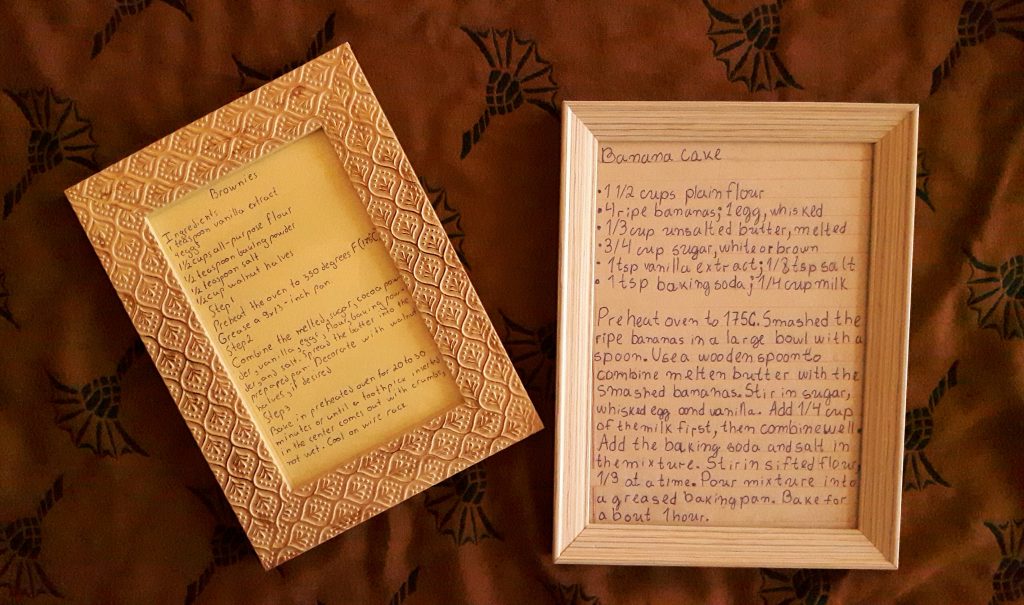 Brownies
Ingredients
1 teaspoon vanilla extract
4 eggs
1 1/2 cups all-purpose flour
1/2 teaspoon baking powder
1/2 teaspoon salt
1/2 cup walnut halves
Step 1
Preheat the oven to 350 degrees F (175C).
Grease a 9x13-inch pan.
Step 2
Combine the melted, sugar, cocoa pow
der, vanilla, eggs, flour, baking pow
der, and salt. Spread the batter into the
prepared pan. Decorate with walnut
halves, if desired
Step 3
Bake in preheated oven for 20 to 30
minutes or until a toothpick inserted
in the center comes out with crumbs,
not wet. Cool on wire rack
Banana cake
• 1 1/2 cups plain flour
• 4 ripe bananas; 1 egg, whisked
• 1/3 cup unsalted butter, melted
• 3/4 cup sugar, white or brown
• 1 tsp vanilla extract; 1/8 tsp salt
• 1 tsp baking soda; 1/4 cup milk
Preheat oven to 175C. Smashed the
ripe bananas in a large bowl with a
spoon. Use a wooden spoon to
combine melten butter with the
smashed bananas. Stir in sugar,
whisked egg and vanilla. Add 1/4 cup
of the milk first, then combine well.
Add the baking soda and salt in
the mixture. Stir in sifted flour,
1/3 at a time. Pour mixture into
a greased baking pan. Bake for
about 1 hour.